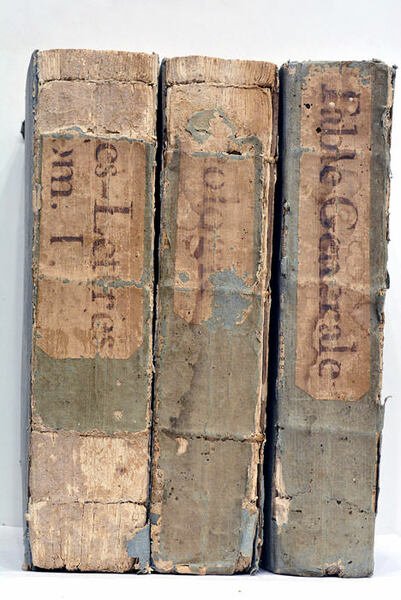 es-Lettres
om. I
olog
Table Generale